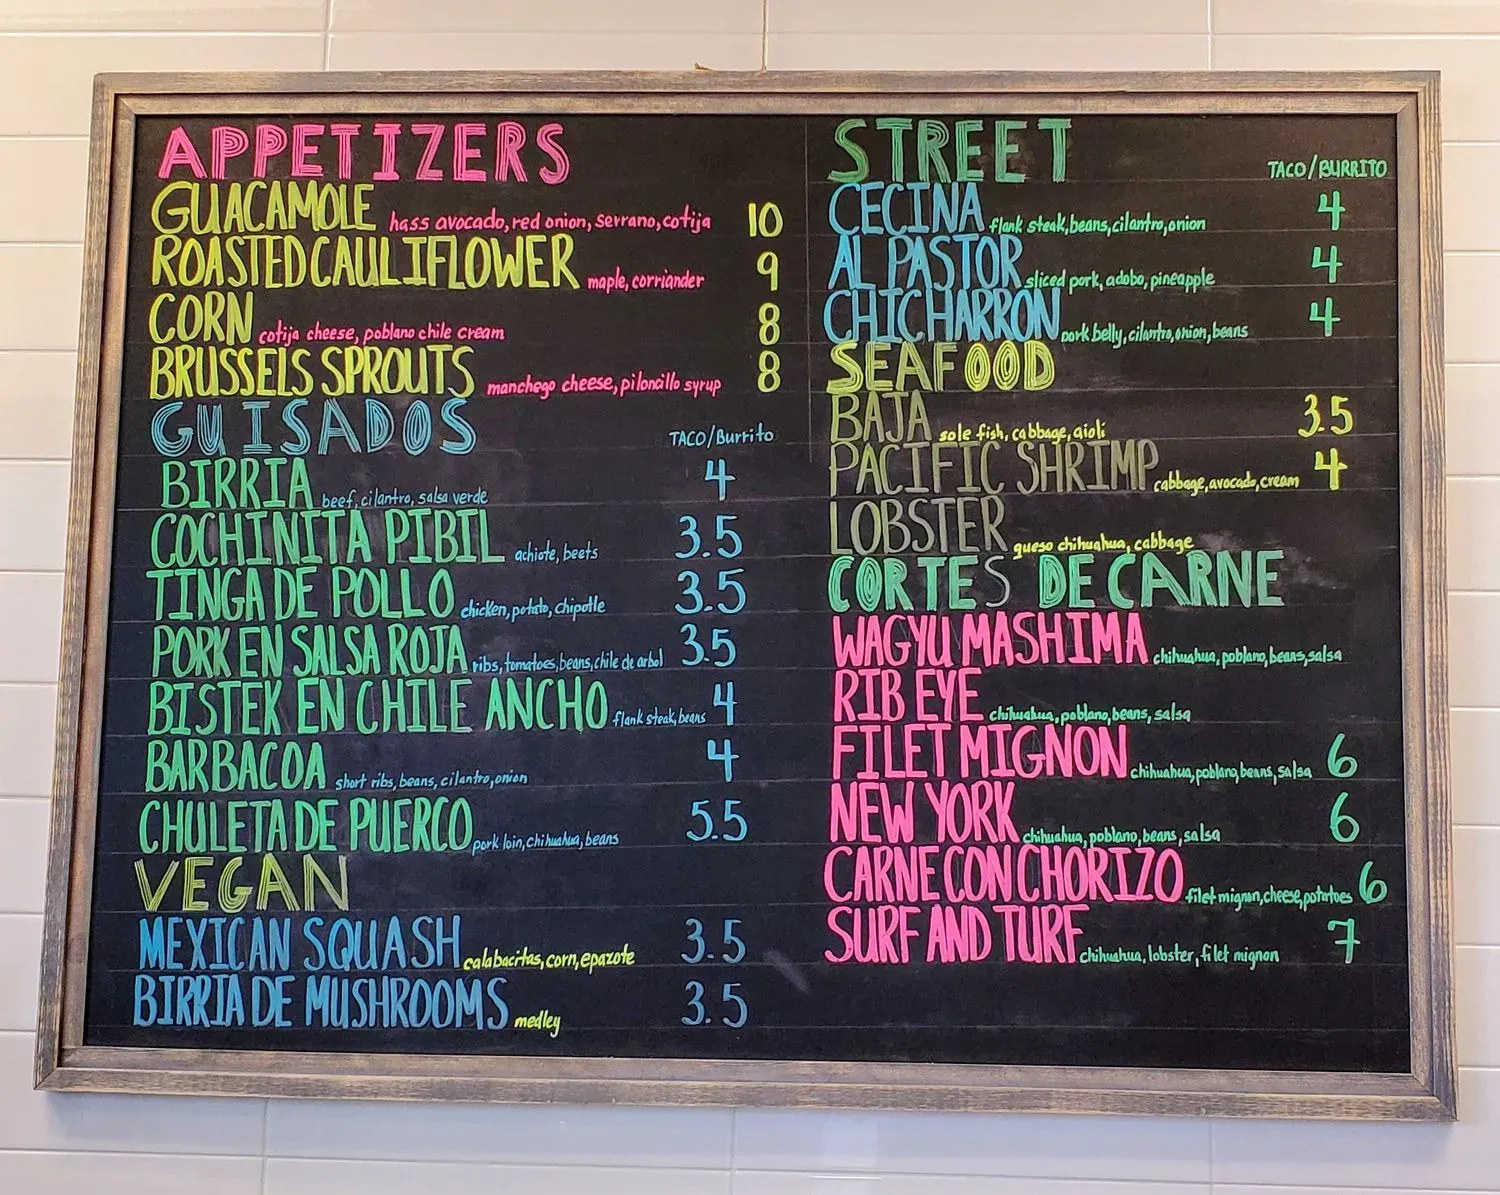 APPETIZERS
GUACAMOLE hass avocado, red onion, serrano, cotija 10
ROASTED CAULIFLOWER maple, corriander 9
CORN cotija cheese, poblano chile cream 8
BRUSSELS SPROUTS manchego cheese, piloncillo syrup 8
GUISADOS TACO/Burrito
BIRRIA beef, cilantro, salsa verde 4
COCHINITA PIBIL achiote, beets 3.5
TINGA DE POLLO chicken, potato, chipotle 3.5
PORK EN SALSA ROJA ribs, tomatoes, beans, chile de arbol 3.5
BISTEK EN CHILE ANCHO flank steak, beans 4
BARBACOA short ribs, beans, cilantro, onion 4
CHULETA DE PUERCO pork loin, chihuahua, beans 5.5
VEGAN
MEXICAN SQUASH calabacitas, corn, epazote 3.5
BIRRIA DE MUSHROOMS medley 3.5
STREET TACO/BURRITO
CECINA flank steak, beans, cilantro, onion 4
AL PASTOR sliced pork, adobo, pineapple 4
CHICHARRON pork belly, cilantro, onion, beans 4
SEAFOOD
BAJA sole fish, cabbage, aioli 3.5
PACIFIC SHRIMP cabbage, avocado, cream 4
LOBSTER queso chihuahua, cabbage
CORTES DE CARNE
WAGYU MASHIMA chihuahua, poblano, beans, salsa
RIB EYE chihuahua, poblano, beans, salsa
FILET MIGNON chihuahua, poblano, beans, salsa 6
NEW YORK chihuahua, poblano, beans, salsa 6
CARNE CON CHORIZO filet mignon, cheese, potatoes 6
SURF AND TURF chihuahua, lobster, filet mignon 7